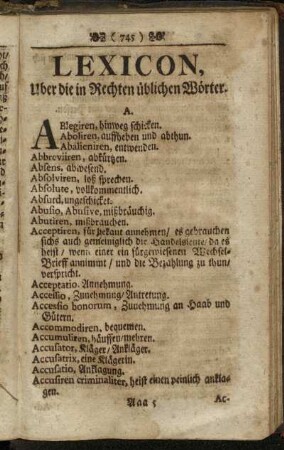 ( 745 )
LEXICON,
Uber die in Rechten üblichen Wörter.
A.
ABlegiren, hinweg schicken.
Aboliren, auffheben und abthun.
Abalieniren, entwenden.
Abbreviiren, abkürtzen.
Absens, abwesend.
Absolviren, loß sprechen.
Absolute, vollkommentlich.
Absurd, ungeschicket.
Abusio, Abusive, mißbräuchig.
Abutiren, mißbrauchen.
Acceptiren, für bekant annehmen/ es gebrauchen
sichs auch gemeiniglich die Handelsleute/ da es
heist/ wenn einer ein fürgewiesenen Wechsel-
Brieff annimmt/ und die Bezahlung zu thun/
verspricht.
Acceptatio, Annehmung.
Accessio, Zunehmung/ Antretung.
Accessio bonorum, Zunehmung an Haab und
Gütern.
Accommodiren, bequemen.
Accumuliren, häuffen/mehren.
Accusator, Kläger/ Ankläger.
Accusatrix, eine Klägerin.
Accusatio, Anklagung.
Accusiren criminaliter, heist einen peinlich ankla-
gen.
Aaa 5 Ac-